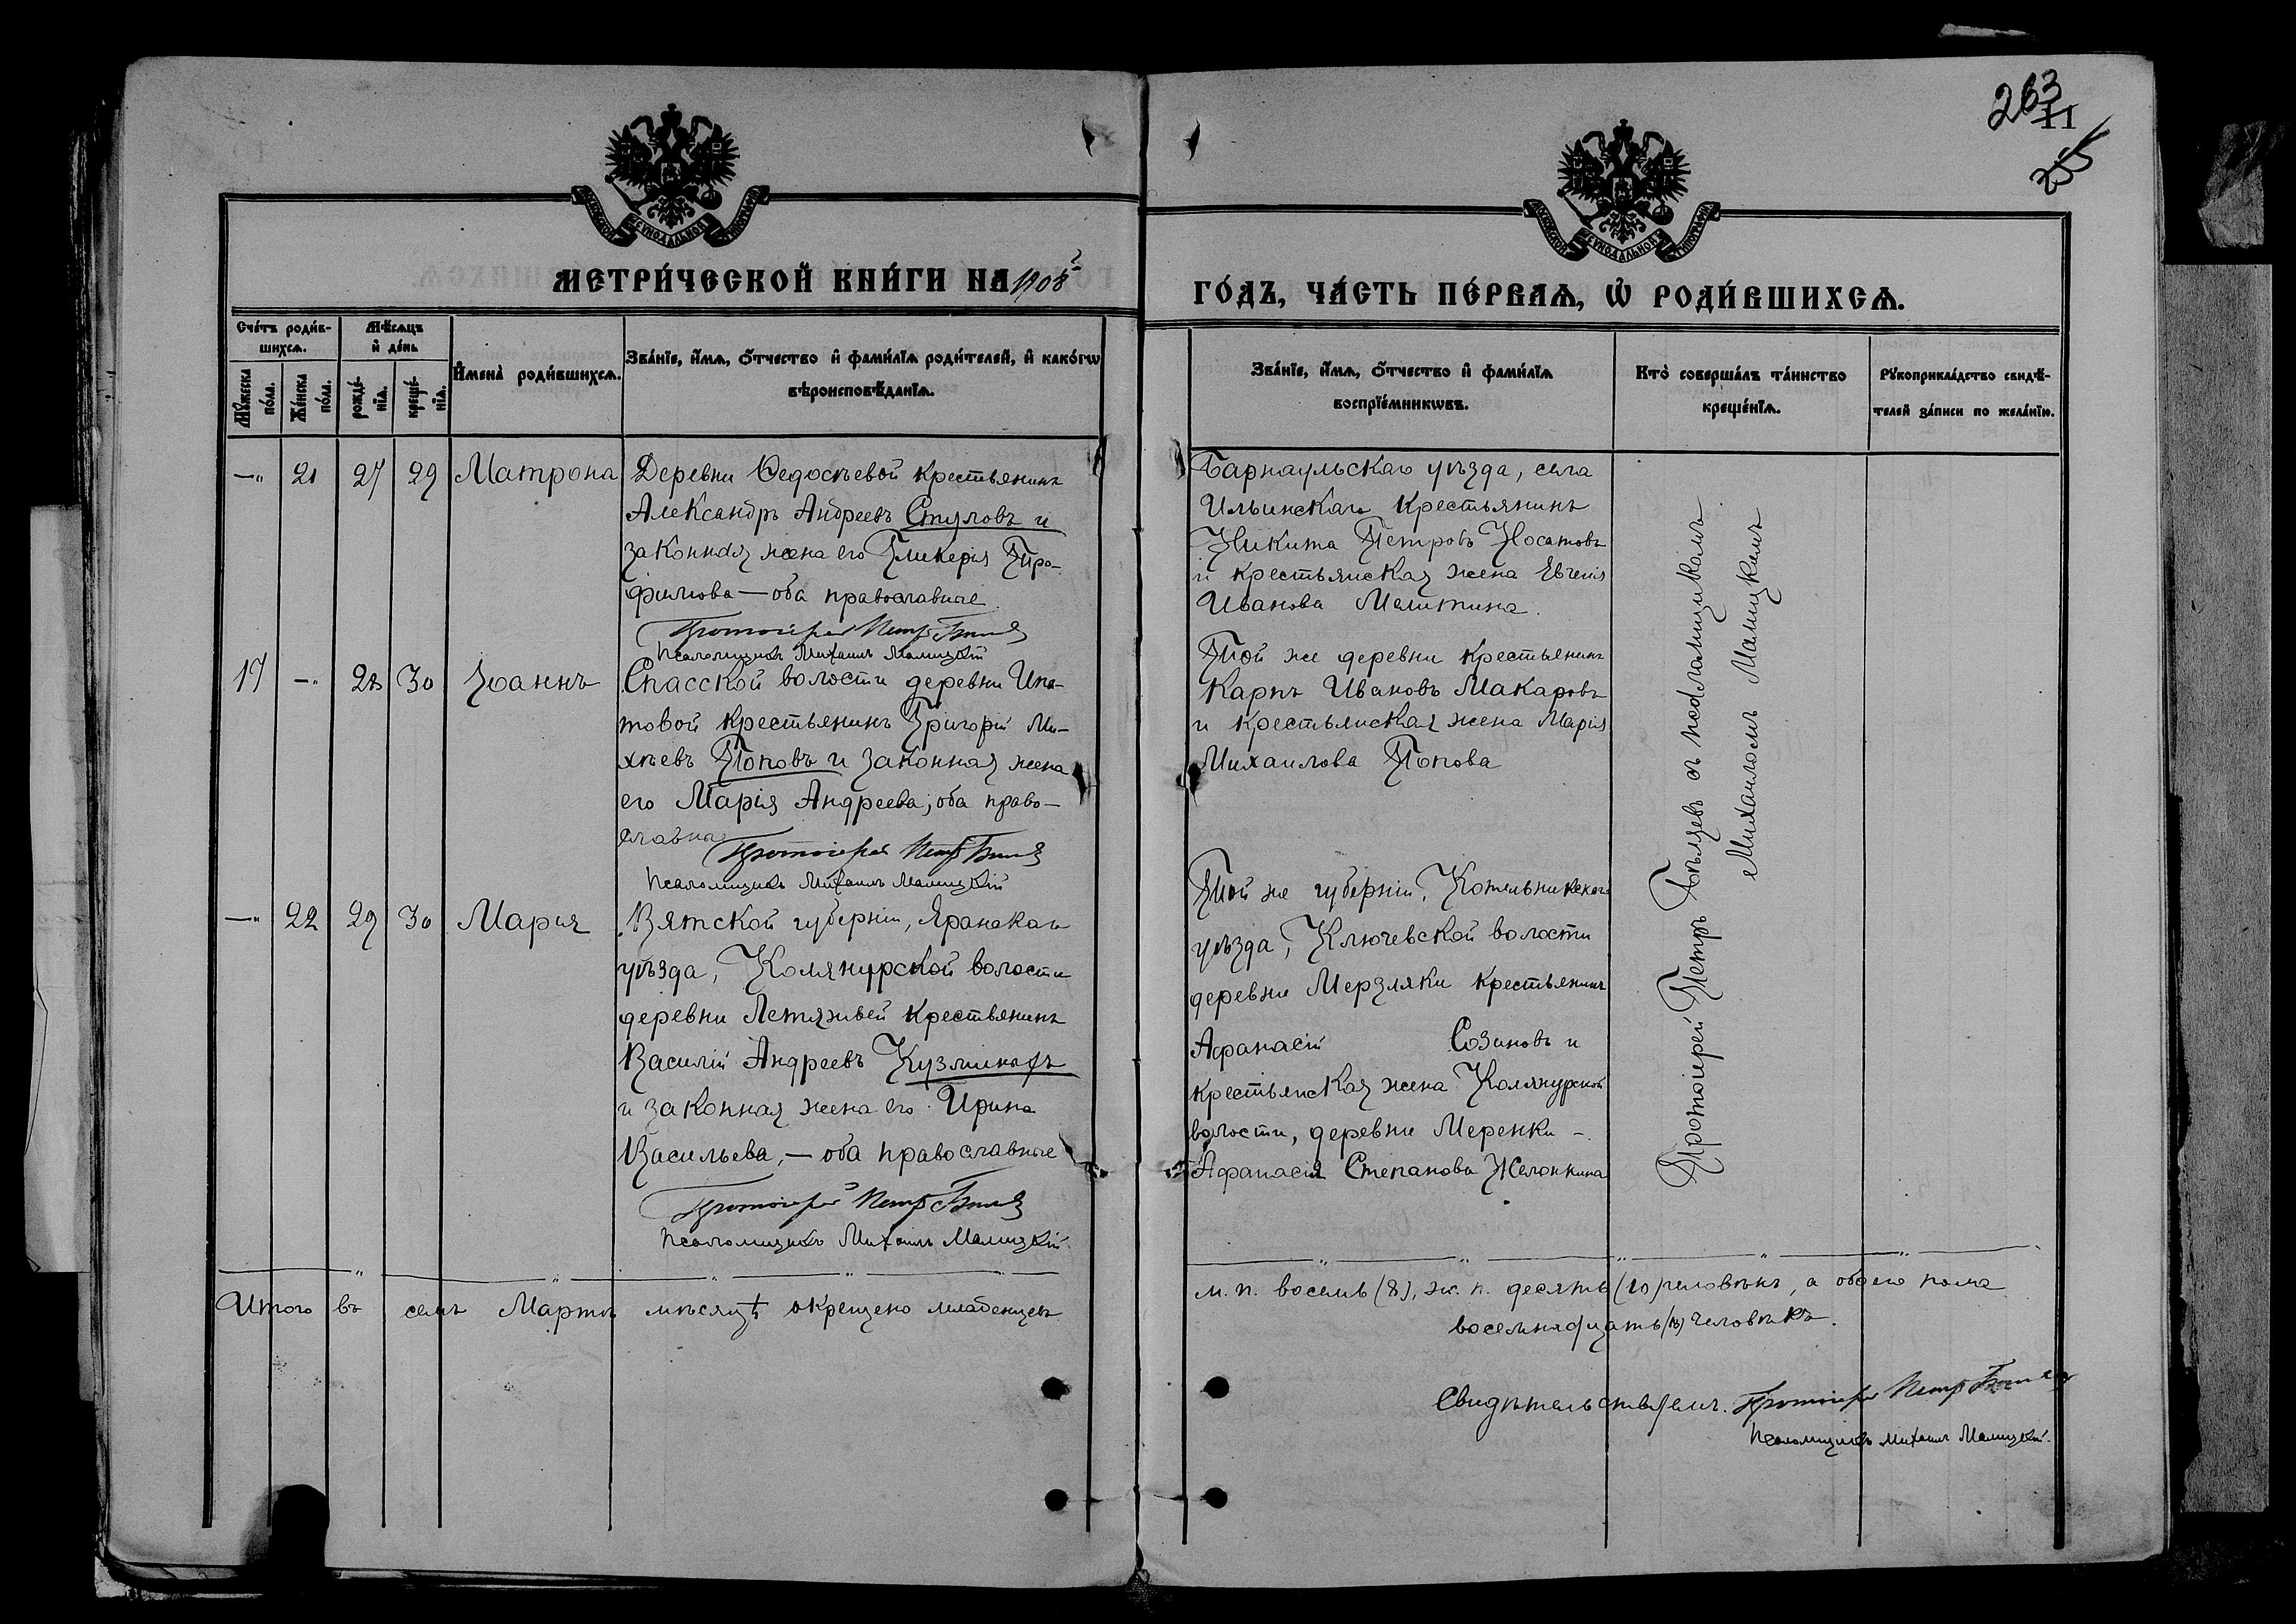 263
11
255
МЕТРИ́ЧЕСКОЙ КНИ́ГИ НА 1908й
ГО́ДЪ, ЧА́СТЬ ПЕ́РВАѦ, Ѡ РОДИ́ВШИХСѦ.
Сче́тъ роди́в-
шихсѧ.
Мѣ́сѧцъ
и́ де́нь
Мꙋ́жеска
по́ла.
Же́нска
по́ла.
рожде́-
нїѧ.
креще́-
нїѧ.
И҆мена̀ роди́вшихсѧ.
Зва́нїе, и҆́мѧ, ѻ҆́тчество и҆ фами́лїѧ роди́телей, и҆ како́гѡ
вѣроисповѣ́данїѧ.
Зва́нїе, и҆́мѧ, ѻ҆́тчество и҆ фами́лїѧ
воспрїе́мникѡвъ.
Кто̀ соверша́лъ та́инство
креще́нїѧ.
Рꙋкоприкла́дство свидѣ́-
телей за́писи по жела́нїю.
—„ 21 27 29 Матрона Деревни Ѳедосѣевой крестьянинъ
Александръ Андреевъ Стуловъ и
законная жена его Гликерія Про-
филова — оба православные
Протоіерей Петръ Бѣляевъ
Псаломщикъ Михаилъ Малицкій
Барнаульскаго уѣзда, села
Ильинскаго крестьянинъ
Никита Петровъ Носатовъ
и крестьянская жена Евгенія
Иванова Мелитина.
17 —„ 28 30 Іоаннъ Спасской волости деревни Ипа-
товой крестьянинъ Григорій Ми-
хѣевъ Поповъ и законная жена
его Марія Андреева, оба право-
славна
Протоіерей Петръ Бѣляевъ
Псаломщикъ Михаилъ Малицкій
Той же деревни крестьянинъ
Карпъ Ивановъ Макаровъ
и крестьянская жена Марія
Михаилова Попова
—„ 22 29 30 Мария Вятской губерніи, Яранскаго
уѣзда, Колянурской волости
деревни Летяжьей крестьянинъ
Василій Андреевъ Кузминовъ
и законная жена его Ирина
Васильева, — оба православные
Протоіерей Петръ Бѣляевъ
Псаломщикъ Михаилъ Малицкій.
Той же губерніи, Котельническаго
уѣзда, Ключевской волости
деревни Мерзляки крестьянинъ
Афанасій Созиновъ и
крестьянская жена Колянурской
волости, деревни Меренки -
Афанасія Степанова Желонкина
Протоіерей Петръ Бѣляевъ съ псаломщикомъ
Михаиломъ Малицкимъ
Итого въ семъ Мартѣ мѣсяцѣ окрещено младенцевъ
м. п. восемь (8), ж. п. десять (10) человѣкъ, а обоего пола
восемнадцать (18) человѣкъ.
Свидѣтельствуемъ. Протоіерей Петръ Бѣляевъ
Псаломщикъ Михаилъ Малицкій.